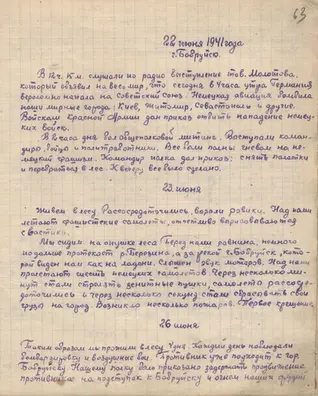 63
22 июня 1941 года
г. Бобруйск.
В 12 ч. дня слушали по радио выступление тов. Молотова,
который объявил на весь мир, что сегодня в 4 часа утра Германия
вероломно напала на Советский Союз. Немецкая авиация бомбила
наши мирные города: Киев, Житомир, Севастополь и другие.
Войскам Красной Армии дан приказ отбить нападение немец-
ких войск.
В 2 часа дня был общеполковой митинг. Выступали коман-
диры, и политработники. Все были полны гневом на не-
мецкий фашизм. Командир полка дал приказ: снять палатки
и перебраться в лес. К вечеру все было сделано.
23 июня
Живем в лесу. Рассосредоточились, вырыли ровики. Над нами
летают фашистские самолеты, отчетливо вырисовываются
свастики.
Мы сидим на опушке леса. Перед нами равнина, немного
подальше протекает р. Березина, а за рекой г. Бобруйск, кото-
рый виден нам как на ладони. Слышен звук моторов. Над нами
пролетают шесть немецких самолетов. Через несколько ми-
нут стали стрелять зенитные пушки, самолеты рассосре-
доточились и через несколько секунд стали сбрасывать свой
груз на город. Возникло несколько пожаров. Первое крещение.
26 июня
Таким образом мы прожили в лесу. Каждый день наблюдали
бомбардировку и воздушные бои. Противник уже подходит к гор.
Бобруйску. Нашему полку было приказано задержать продвижение
противника на подступах к Бобруйску и огнем наших орудий